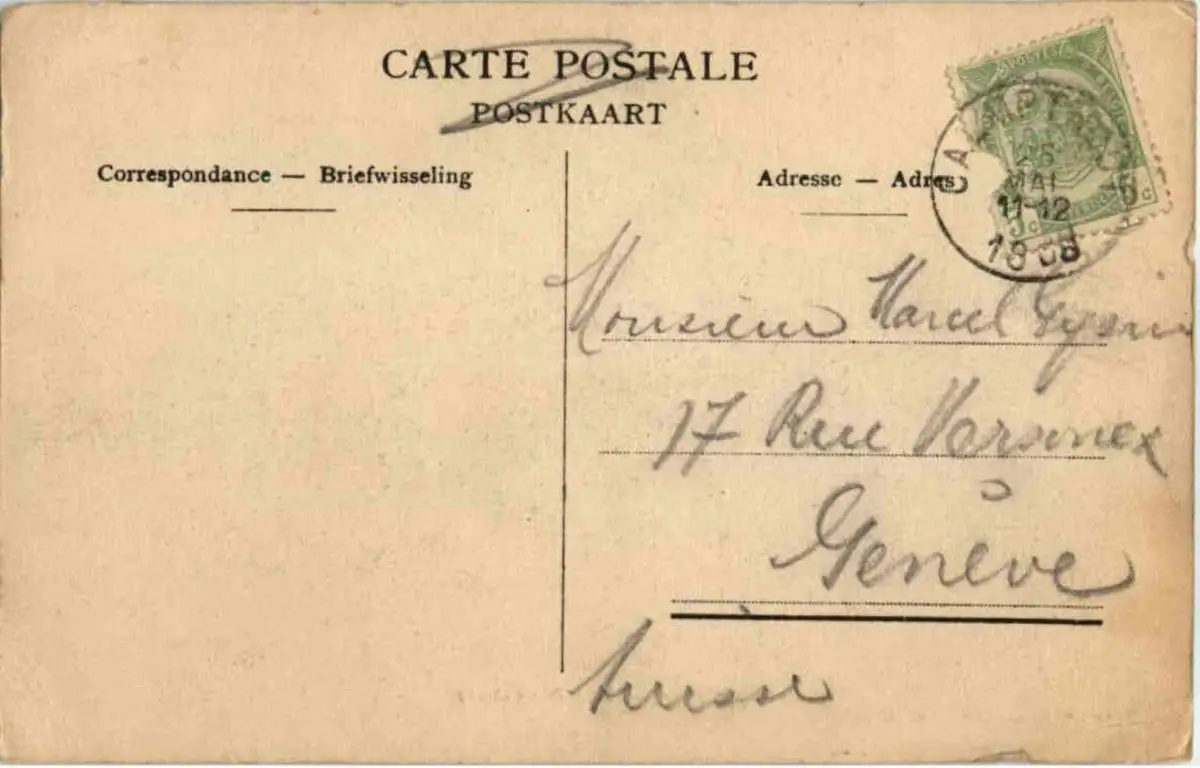 CARTE POSTALE
POSTKAART
Correspondance — Briefwisseling
Adresse — Adres
26
MAI
11-12
5c 5c
Monsieur Marcel
17 Rue Versonex
Genève
Suisse